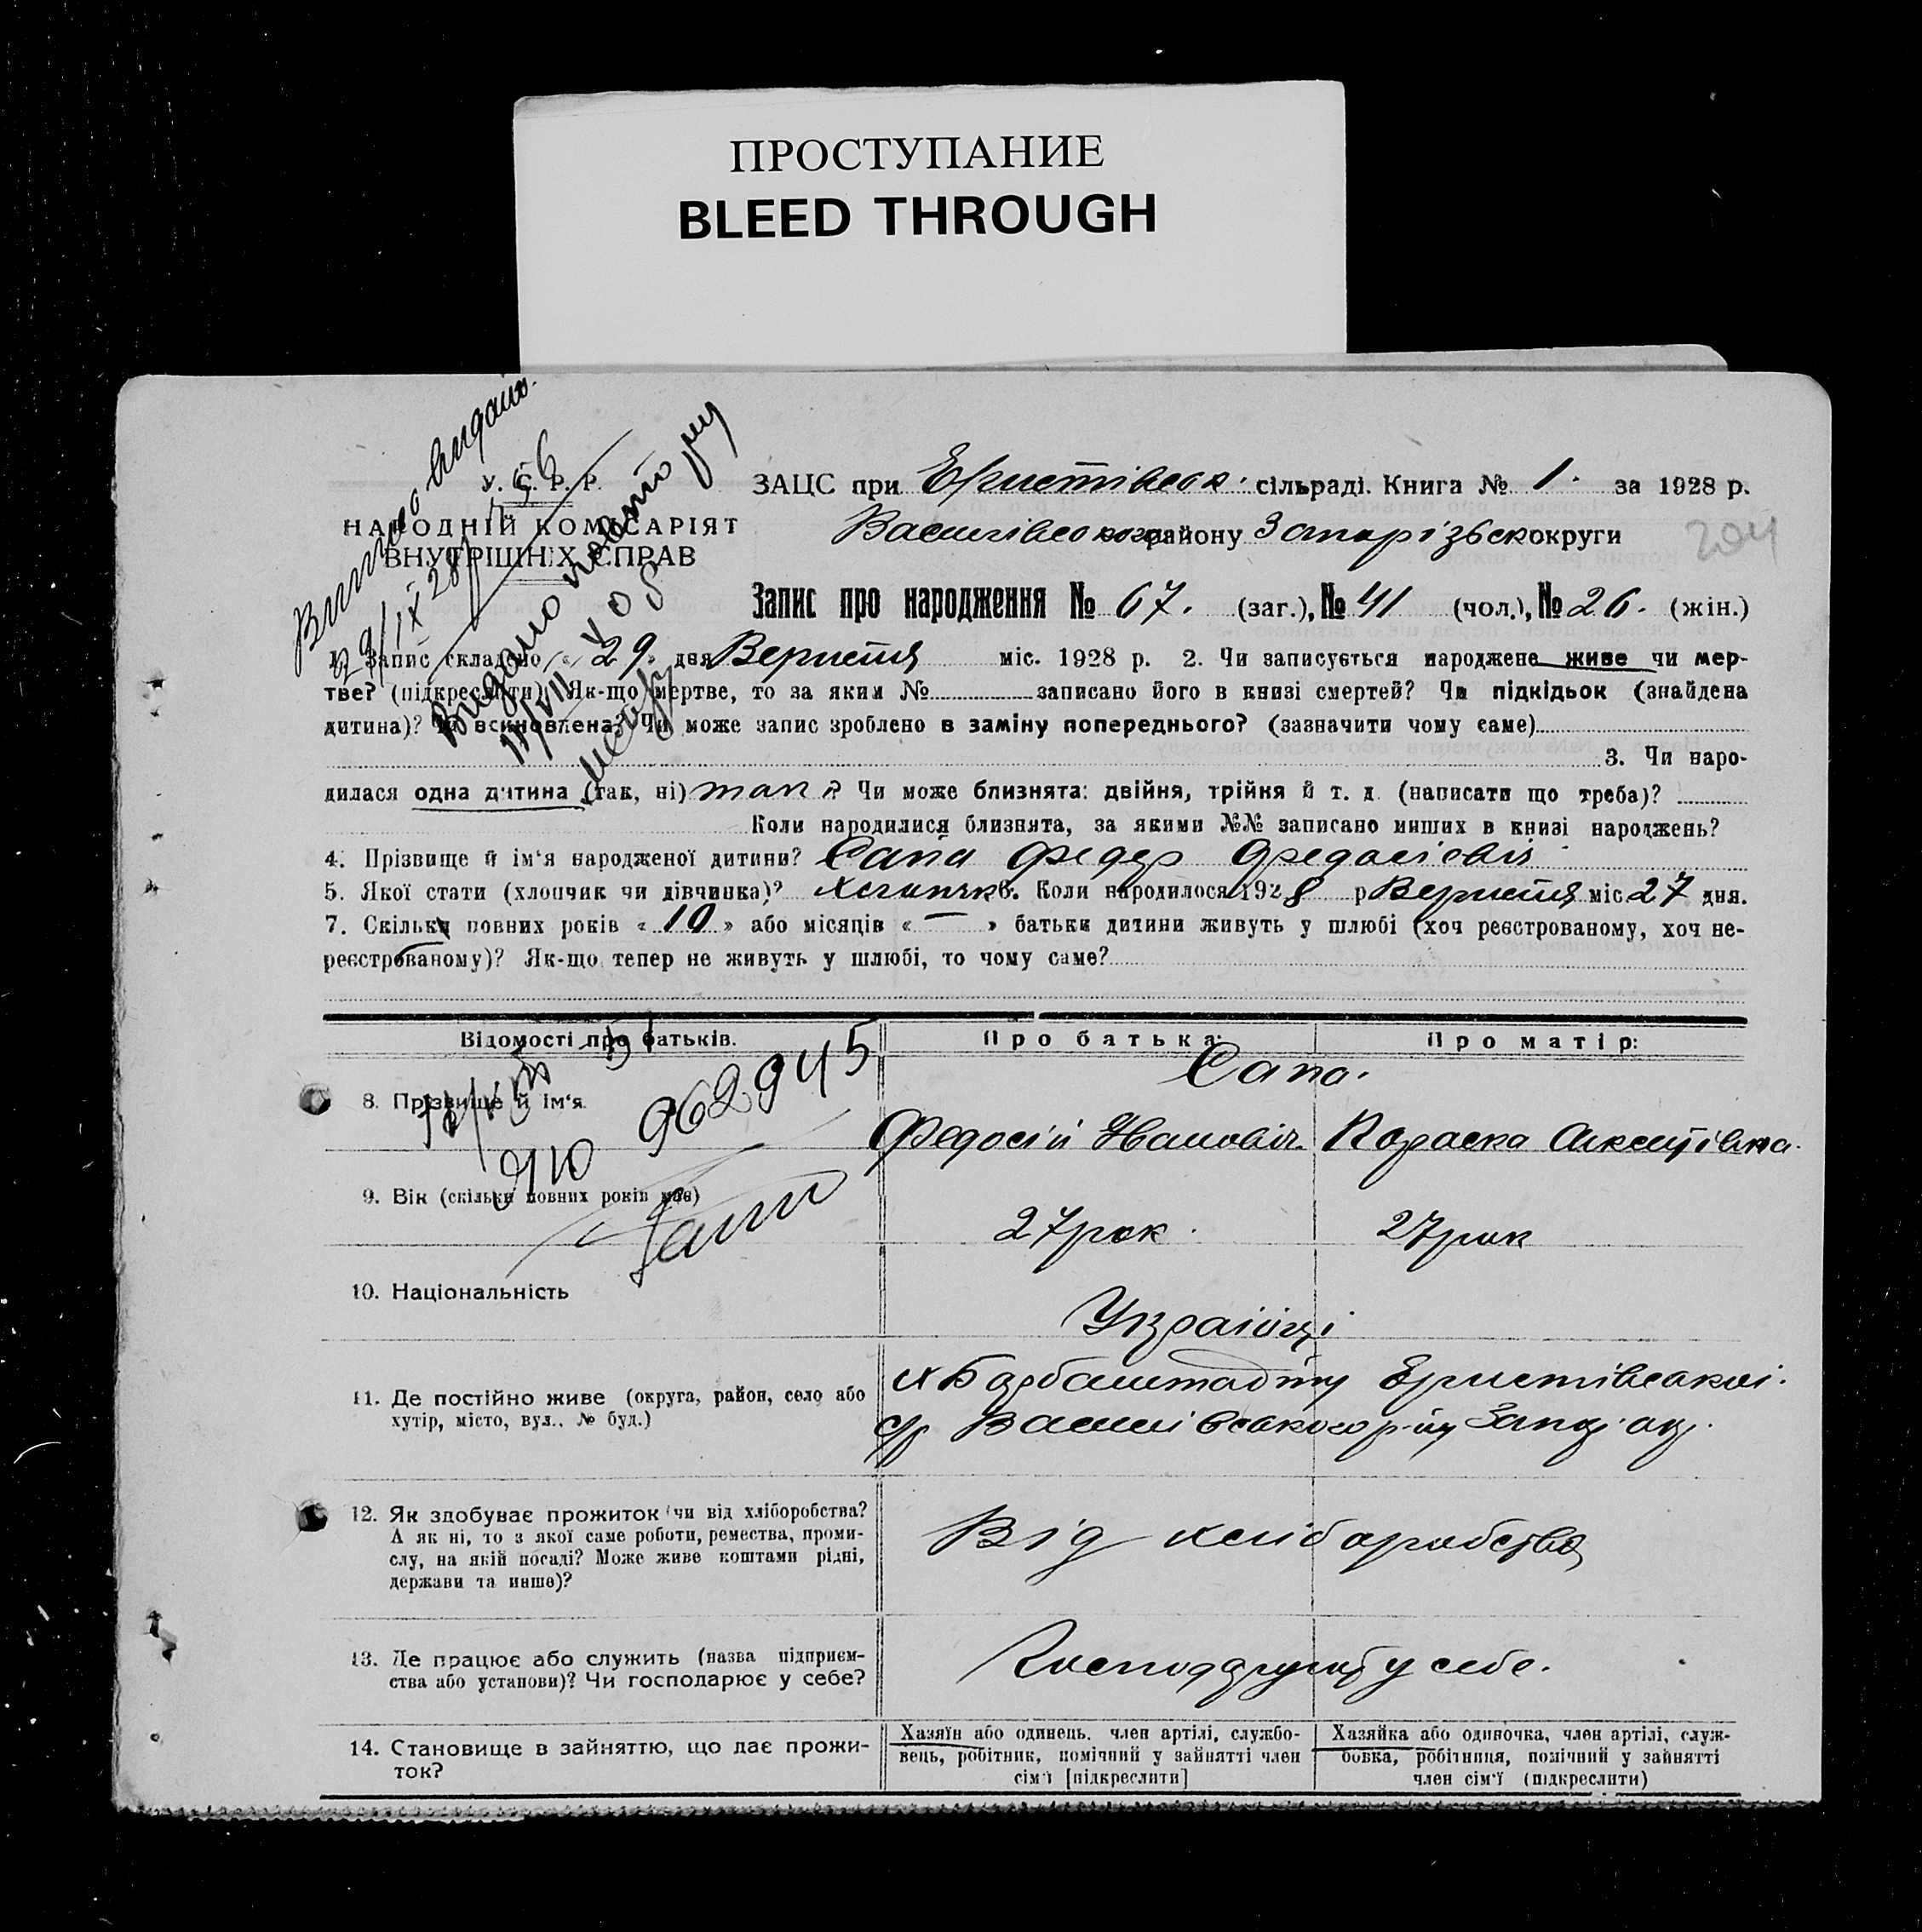 ПРОСТУПАНИЕ
BLEED THROUGH
У. С. Р. Р.
НАРОДНІЙ КОМІСАРІЯТ
ВНУТРІШНІХ СПРАВ
ЗАЦС при Еристівськ. сільраді. Книга № 1. за 1928 р.
Василівського району Запорізьск округи
204
Запис про народження № 67. (заг.), № 41 (чол.), № 26. (жін.)
1. Запис складено „ 29 „ дня Верпетя міс. 1928 р. 2. Чи записується народжене живе чи мер-
тве? (підкреслити) Як-що мертве, то за яким № записано його в книзі смертей? Чи підкідьок (знайдена
дитина)? Чи всиновлена? Чи може запис зроблено в заміну попереднього? (зазначити чому саме)
3. Чи наро-
дилася одна дитина (так, ні) так ? Чи може близнята: двійня, трійня й т. д. (написати що треба)?
Коли народилися близнята, за якими №№ записано инших в книзі народжень?
4. Прізвище й ім'я народженої дитини? Сапа Федер Федосієвіч
5. Якої стати (хлопчик чи дівчинка)? Хлопчик 6. Коли народилося 1928 р Верпетя міс 27 дня.
7. Скільки повних років « 10 » або місяців « — » батьки дитини живуть у шлюбі (хоч реєстрованому, хоч не-
реєстрованому)? Як-що тепер не живуть у шлюбі, то чому саме?
Відомості про батьків. Про батька: Про матір:
Сапа.
8. Прізвище й ім'я Федосій Иванович Параска Аксентівна.
962945
9. Вік (скільки повних років має) 27 рок. 27 рок
10. Національність Українці
11. Де постійно живе (округа, район, село або
хутір, місто, вул., № буд.)
х Еристівської.
с/р Василівського р-ну Запор. окр.
12. Як здобуває прожиток (чи від хліборобства?
А як ні, то з якої саме роботи, ремества, проми-
слу, на якій посаді? Може живе коштами рідні,
держави та инше)?
Від хліборобства
13. Де працює або служить (назва підприєм-
ства або установи)? Чи господарює у себе?
Господарують у себе.
14. Становище в зайняттю, що дає прожи-
ток?
Хазяїн або одинець, член артілі, службо-
вець, робітник, помічний у зайнятті член
сім'ї [підкреслити]
Хазяйка або одиночка, член артілі, служ-
бовка, робітниця, помічний у зайнятті
член сім'ї (підкреслити)